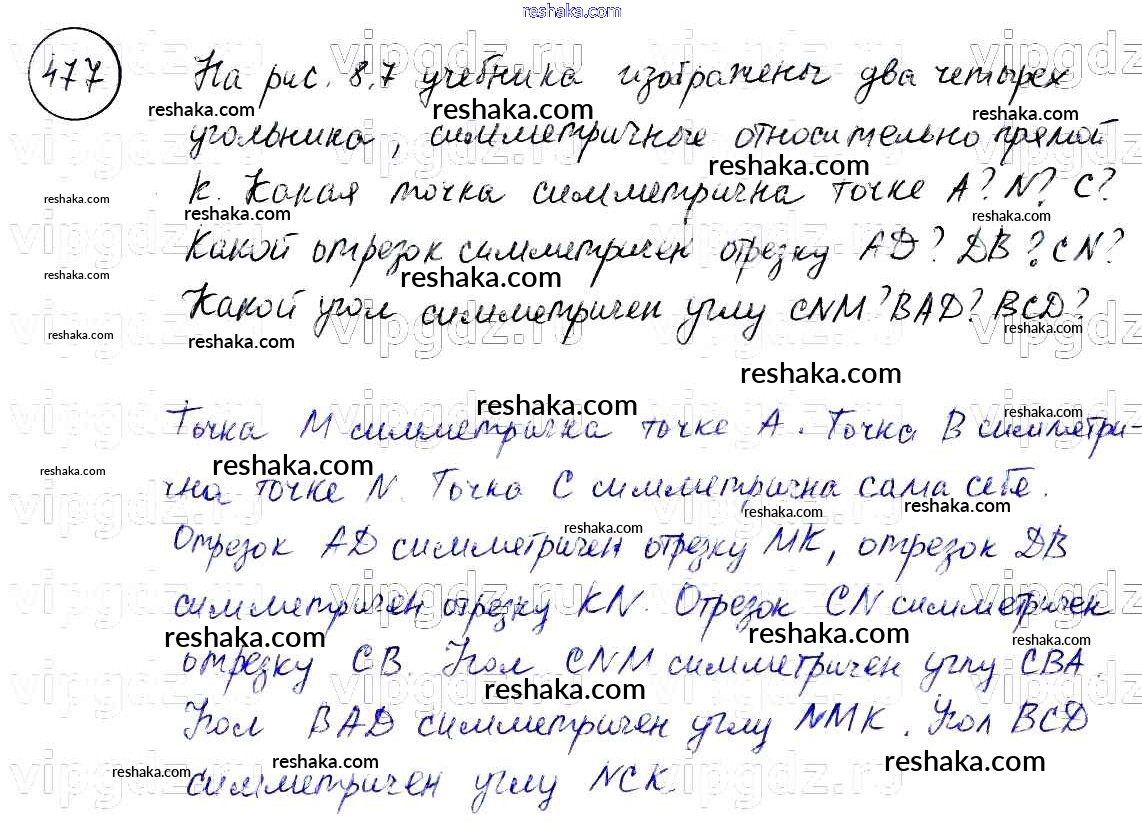 reshaka.com
477 На рис. 8.7 учебника изображены два четырех
угольника, симметричные относительно прямой
k. Какая точка симметрична точке A? N? C?
Какой отрезок симметричен отрезку AD? DB? CN?
Какой угол симметричен углу CNM? BAD? BCD?
Точка M симметрична точке A. Точка B симметри-
чна точке N. Точка C симметрична сама себе.
Отрезок AD симметричен отрезку MK, отрезок DB
симметричен отрезку KN. Отрезок CN симметричен
отрезку CB. Угол CNM симметричен углу CBA.
Угол BAD симметричен углу NMK. Угол BCD
симметричен углу NCK.